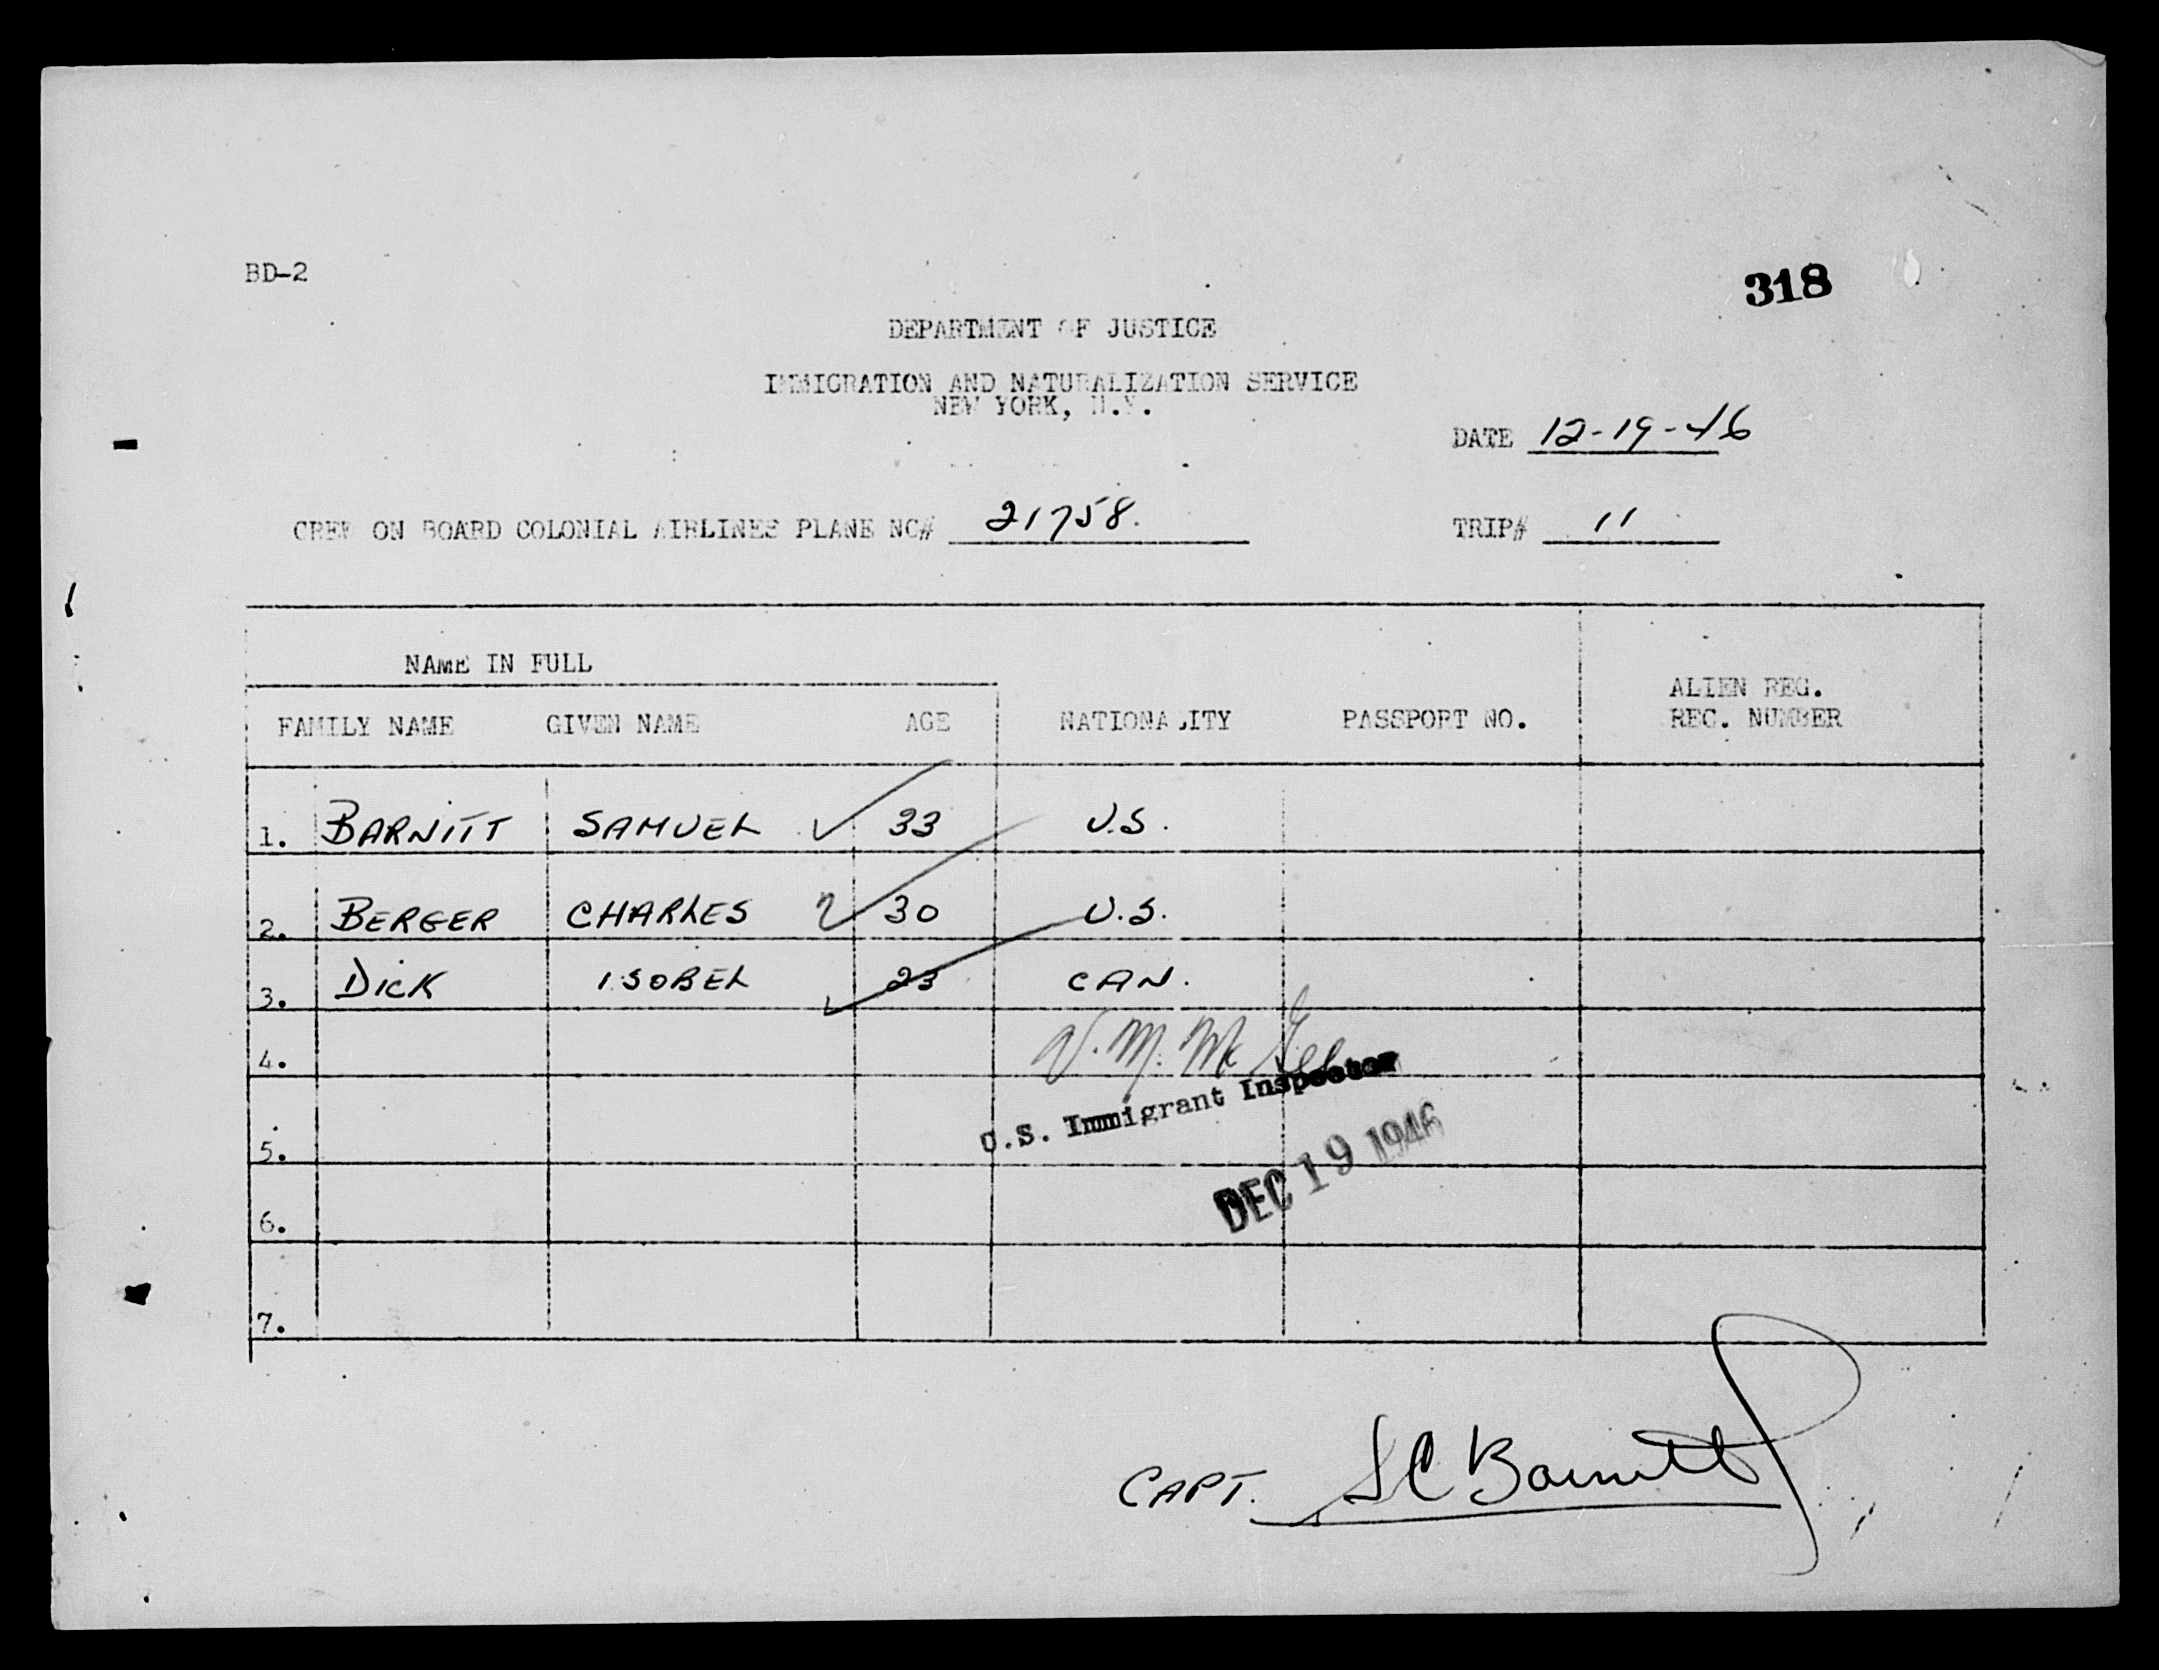 BD-2
318
DEPARTMENT OF JUSTICE
IMMIGRATION AND NATURALIZATION SERVICE
NEW YORK, N.Y.
DATE 12-19-46
CREW ON BOARD COLONIAL AIRLINES PLANE NC# 21758.
TRIP# 11
NAME IN FULL
FAMILY NAME GIVEN NAME AGE NATIONALITY PASSPORT NO. ALIEN REG. REC. NUMBER
1. BARNITT SAMUEL 33 U.S.
2. BERGER CHARLES 30 U.S.
3. DICK ISOBEL 23 CAN.
4.
V. M. Mc
U.S. Immigrant Inspector
5.
DEC 19 1946
6.
7.
CAPT. S C Barnitt